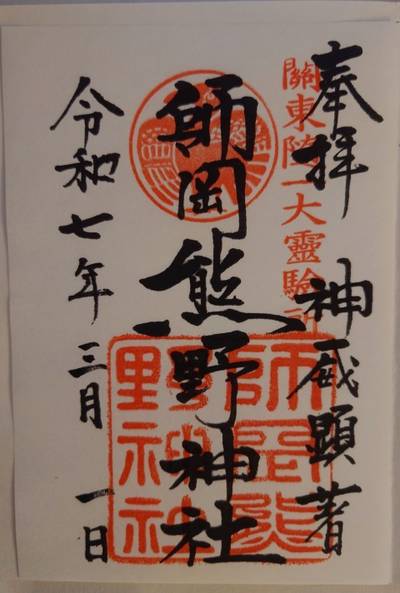 奉拝 神威顕著
關東随一大靈驗神
師岡熊野神社
師岡熊
野神社
令和七年三月一日